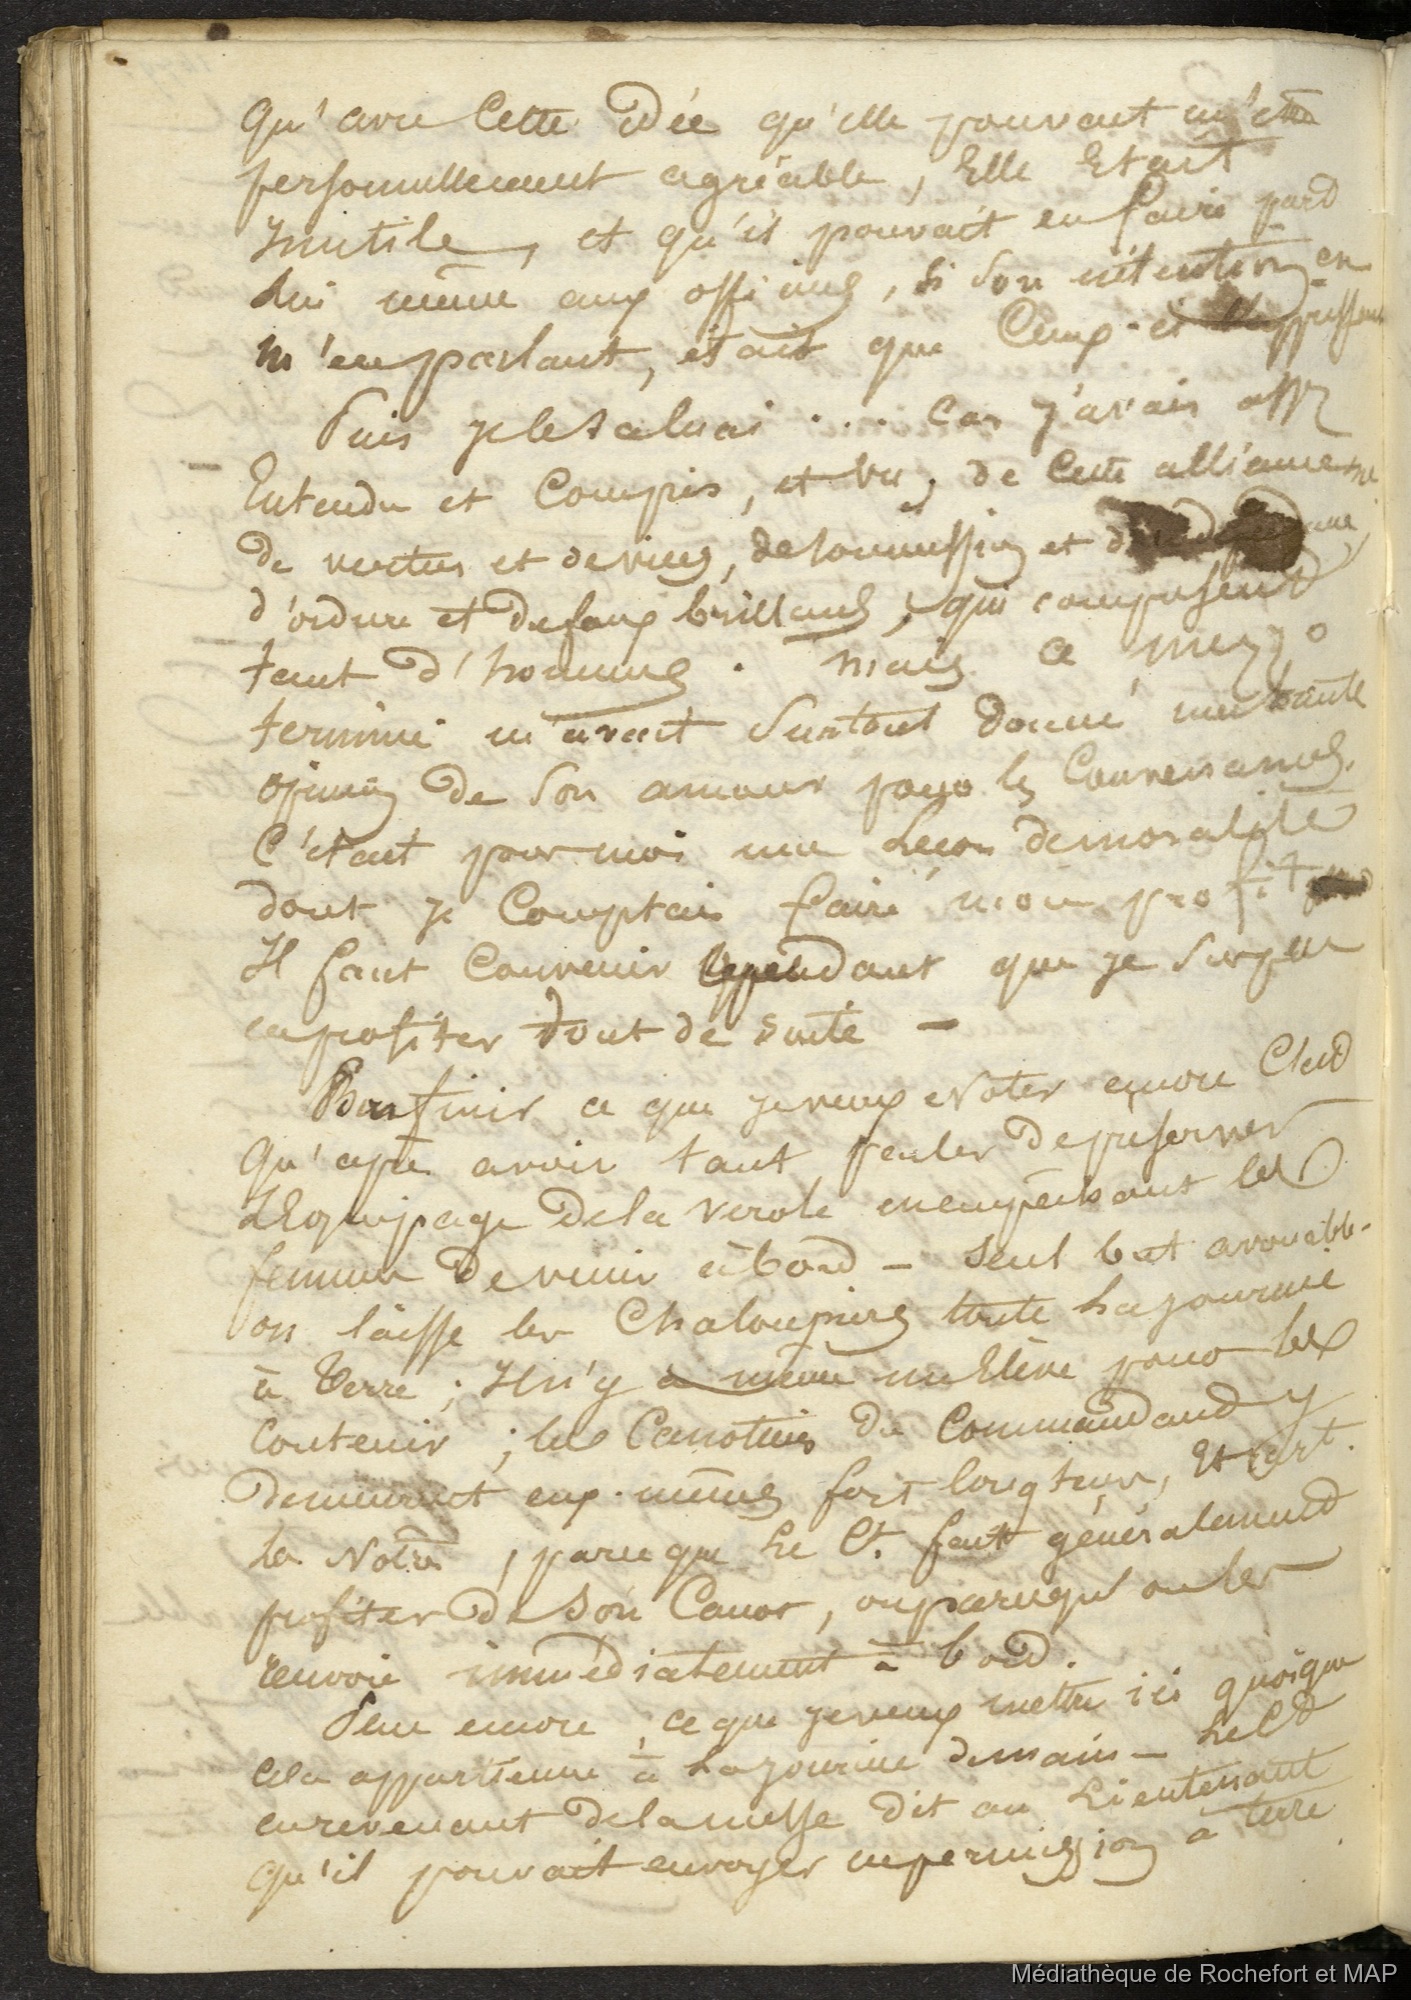 qu'avec Cette idée qu'elle pouvait m'être
personnellement agréable, Elle Etait
Inutile, et qu'il pouvait en faire part
lui même aux officiers, si son intention en
m'en parlant, était que Ceux-ci
Puis je le saluai .... Car j'avais assez
Entendu et Compris, et vu, de Cette alliance
de vertus et de vices, de soumission et
d'ordure et de faux brillants, qui composent
tant d'hommes. Mais ce mezzo
termine m'avait surtout donné une haute
opinion de son amour pour les Convenances.
C'était pour moi une Leçon de moralité
dont je Comptais faire mon profit
Il faut Convenir Cependant que je sus peu
en profiter tout de suite –
Pour finir ce que je veux Noter encore C'est
qu'après avoir tant parler de préserver
L'Equipage de la verole en empêchant les
femmes de venir à bord – seul but avouable –
on laisse les Chaloupiers toute La journée
à Terre ; Il n'y a même un Elève pour les
Contenir ; les Canotiers du Commandant y
demeurent eux-mêmes fort longtems, Et c'est
les Nôtres, parceque Le Ct. fait généralement
profiter de son Canot, ou parcequ'on les
renvoie immédiatement à bord.
Peu encore, ce que je veux mettre ici quoique
cela appartienne à La journée demain – Le Ct
en revenant de la messe dit au Lieutenant
qu'il pouvait envoyer en permission à terre
Médiathèque de Rochefort et MAP